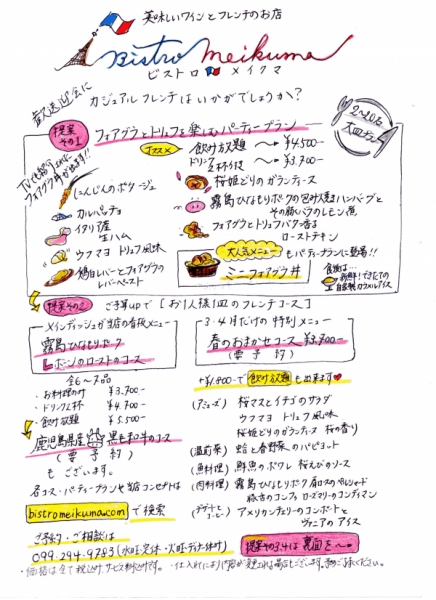 美味しいワインとフレンチのお店
Bistro Meikuma
ビストロ メイクマ
歓送迎会に
カジュアルフレンチはいかがでしょうか?
提案その1
フォアグラとトリュフを楽しむパーティープラン
2〜10名
大皿プラン
飲み放題 〜 ¥4,500-
ドリンク2杯分位 〜 ¥3,700-
にんじんのポタージュ
カルパッチョ
イタリア産
生ハム
ウフマヨ トリュフ風味
鶏白レバーとフォアグラの
レバーペースト
桜姫どりのガランティーヌ
霧島ひなもりポークの包み焼きハンバーグと
その豚バラのレモン煮
フォアグラとトリュフバター香る
ローストチキン
大人気メニューもパーティープランに登場!!
ミニフォアグラ丼
食後は
自家製カラメルアイス
提案その2
ご予算upで [お1人様1皿のフレンチコース]
メインディッシュが当店の看板メニュー
霧島ひなもりポーク
1ポーションのローストのコース
全6〜7品
・お料理のみ ¥3,700-
・ドリンク2杯 ¥4,700-
・飲み放題 ¥5,500-
鹿児島県産黒毛和牛のコース
(要予約)
もございます。
各コース・パーティープランや当店コンセプトは
bistromeikuma.comで検索
ご予約・ご相談は
099-294-9783 (水曜定休・火曜ディナー休み)
3・4月だけの特別メニュー
春のおまかせコース ¥3,700-
(要予約)
+¥1,800-で飲み放題も出来ます
(アミューズ) 桜マスとイチゴのサラダ
ウフマヨ トリュフ風味
桜姫どりのガランティーヌ 桜の香り
(温前菜) 蛤と春野菜のパピヨット
(魚料理) 鮮魚のポワレ 桜えびのソース
(肉料理) 霧島ひなもりポーク肩ロースのペルシャード
豚舌のコンフィ ローズマリーのコンディマン
(デザートとコーヒー) アメリカンチェリーのコンポートと
ヴァニラのアイス
提案その3.4は裏面を〜
・価格は全て税込み、サービス料込みです。